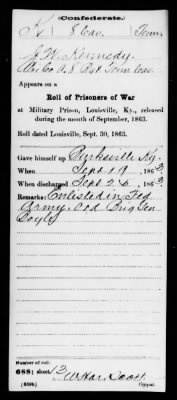 Confederate.
K | 8 Cav. | Tenn.
J. W. Kennedy
Appears on a
Roll of Prisoners of War
at Military Prison, Louisville, Ky., released
during the month of September, 1863.
Roll dated Louisville, Sept. 30, 1863.
Gave himself up Burksville Ky.
When Sept 19, 1863.
When discharged Sept 26, 1863.
Remarks: Enlisted in Fed
Army Ord Brig Gen
Boyle
Number of roll:
688; sheet 13
(639b) Copyist.